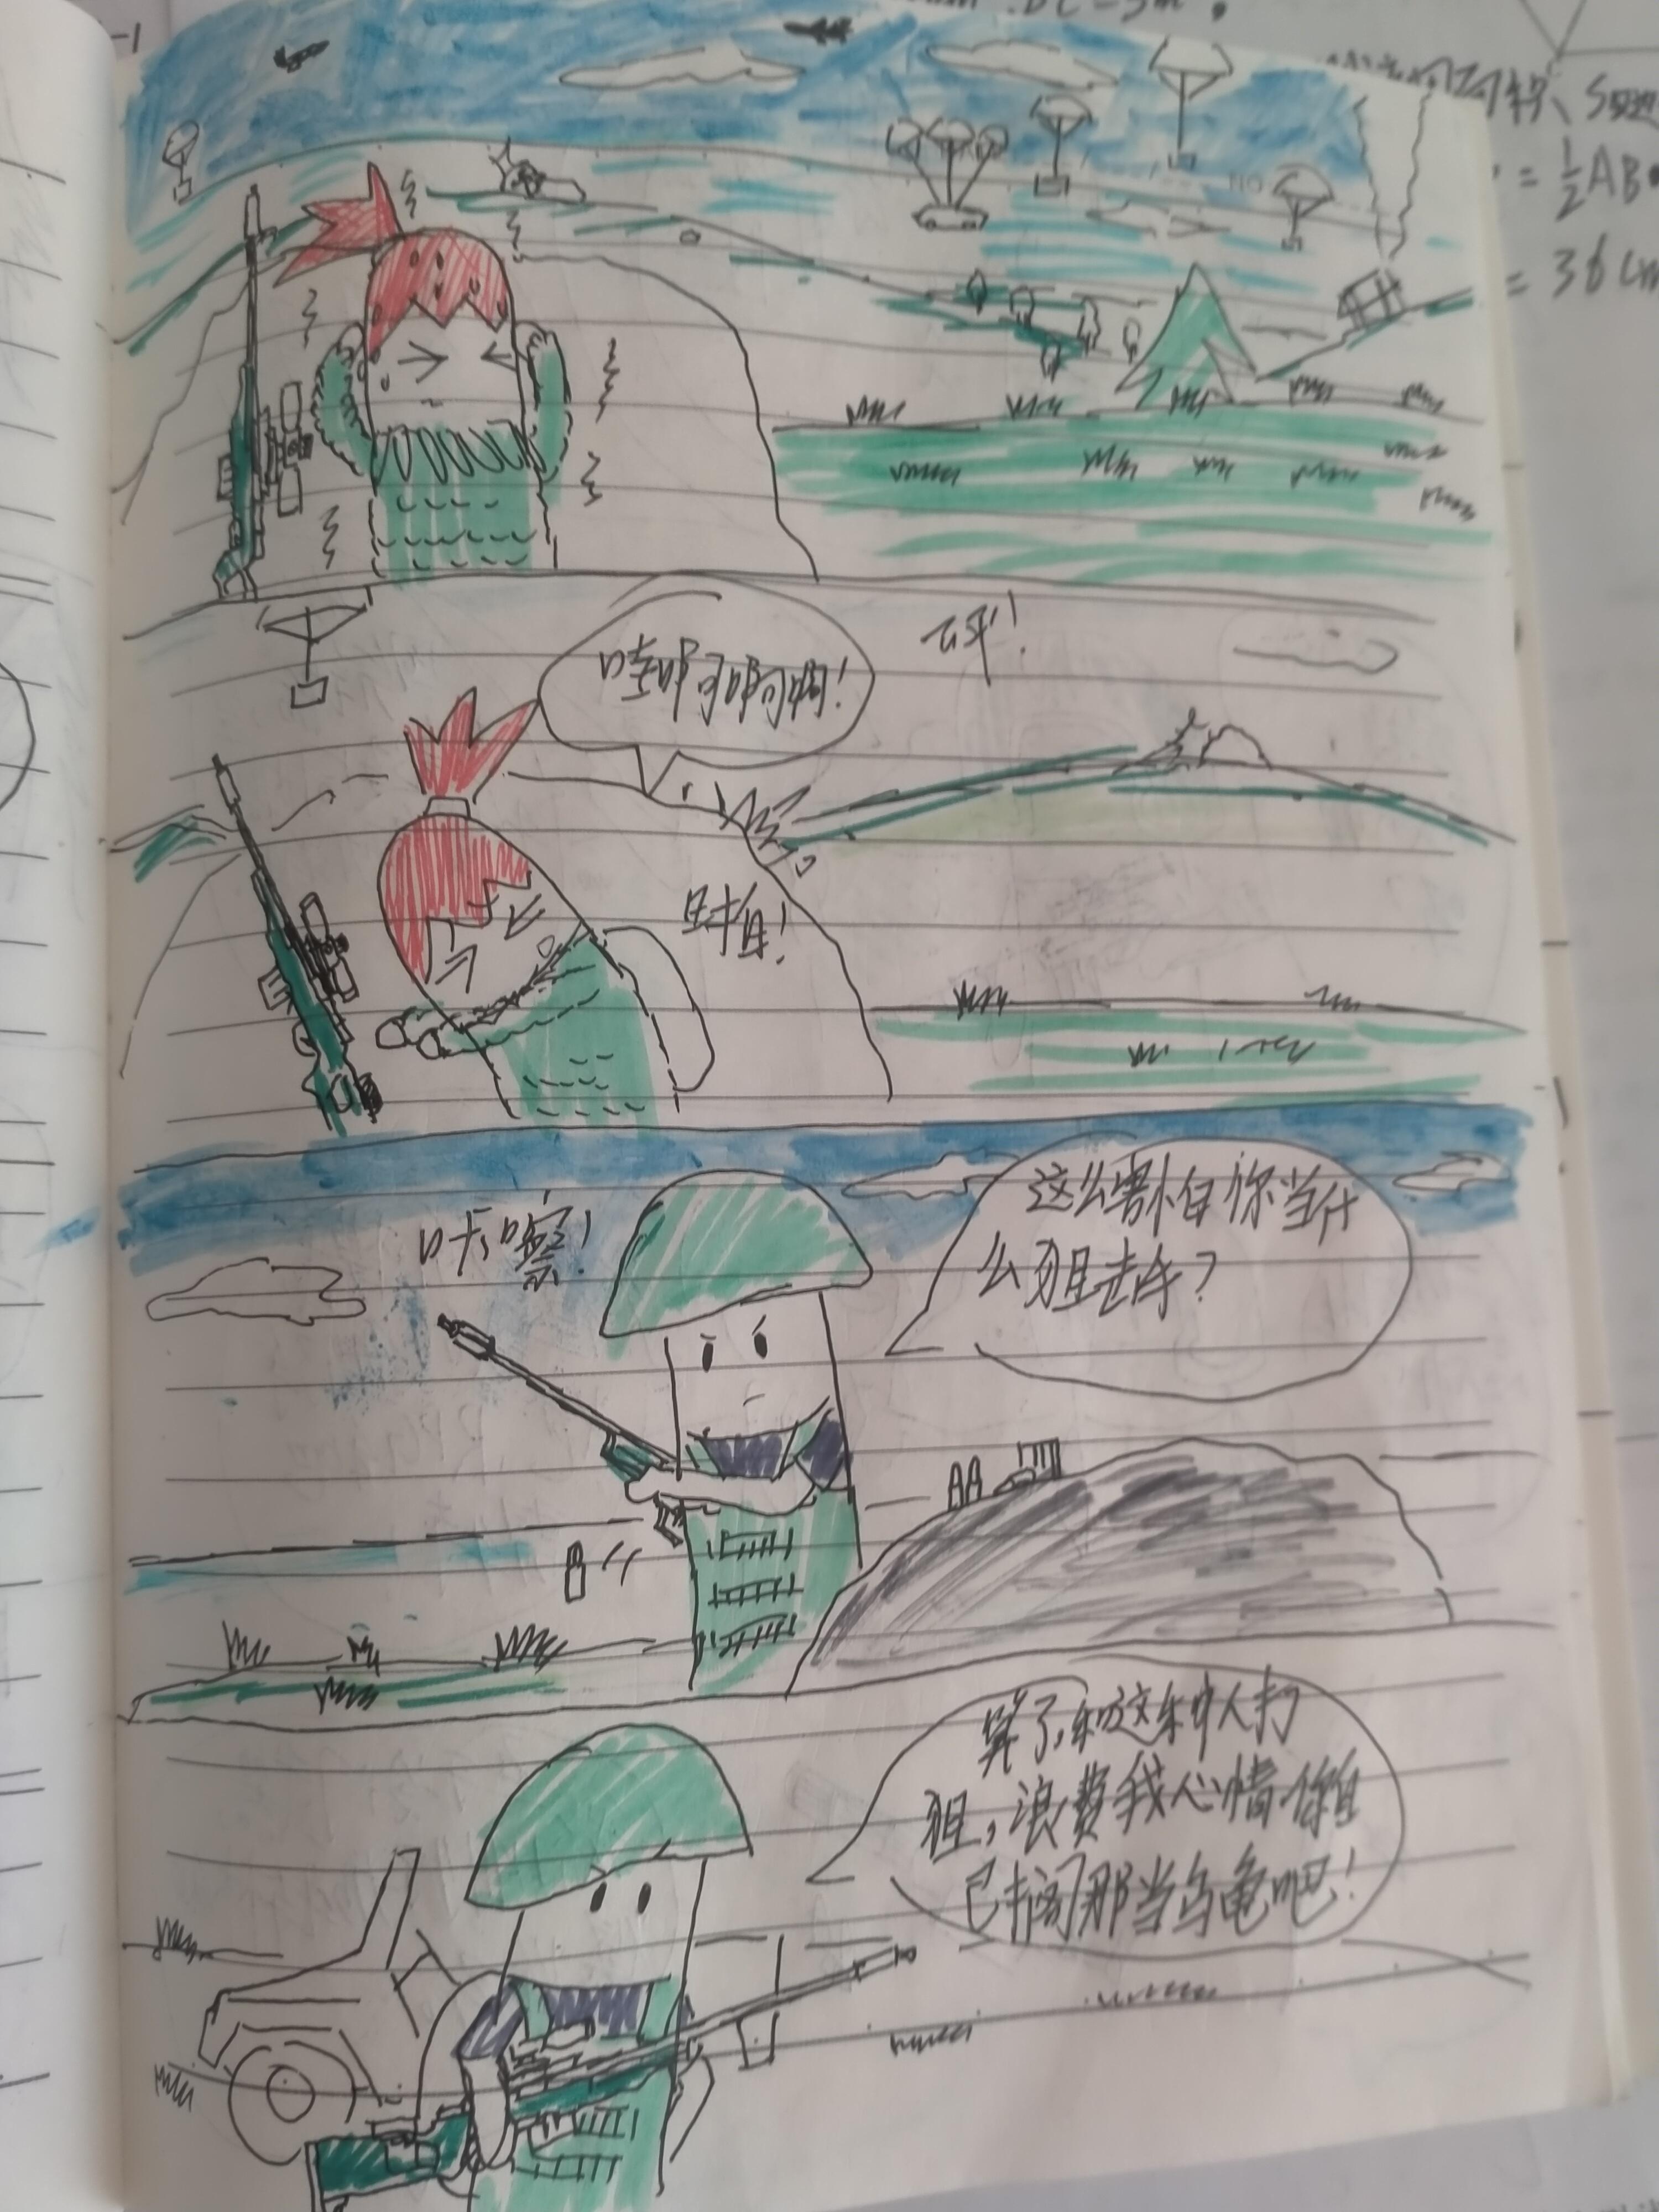 = ½AB
= 36cm
哇啊啊啊!
砰!
咔嚓!
这么害怕你当什
么狙击手?
算了,和这种人打
狙,浪费我心情你自
己搁那当乌龟吧!